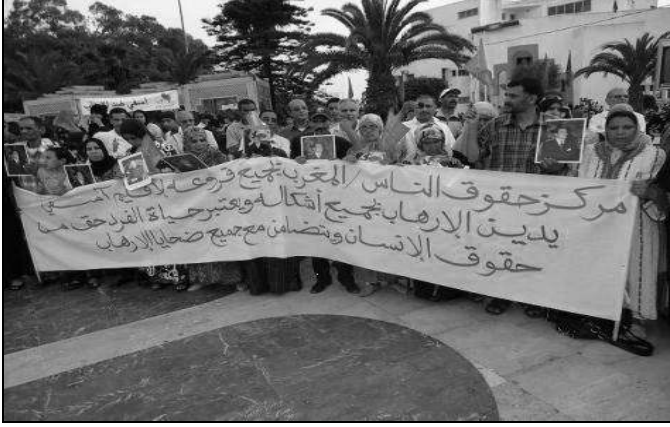 مركز حقوق الناس / المغرب بجميع فروعه لاقليم آسفي
يدين الإرهاب بجميع أشكاله ويعتبر حياة الفرد حق من
حقوق الإنسان ويتضامن مع جميع ضحايا الإرهاب